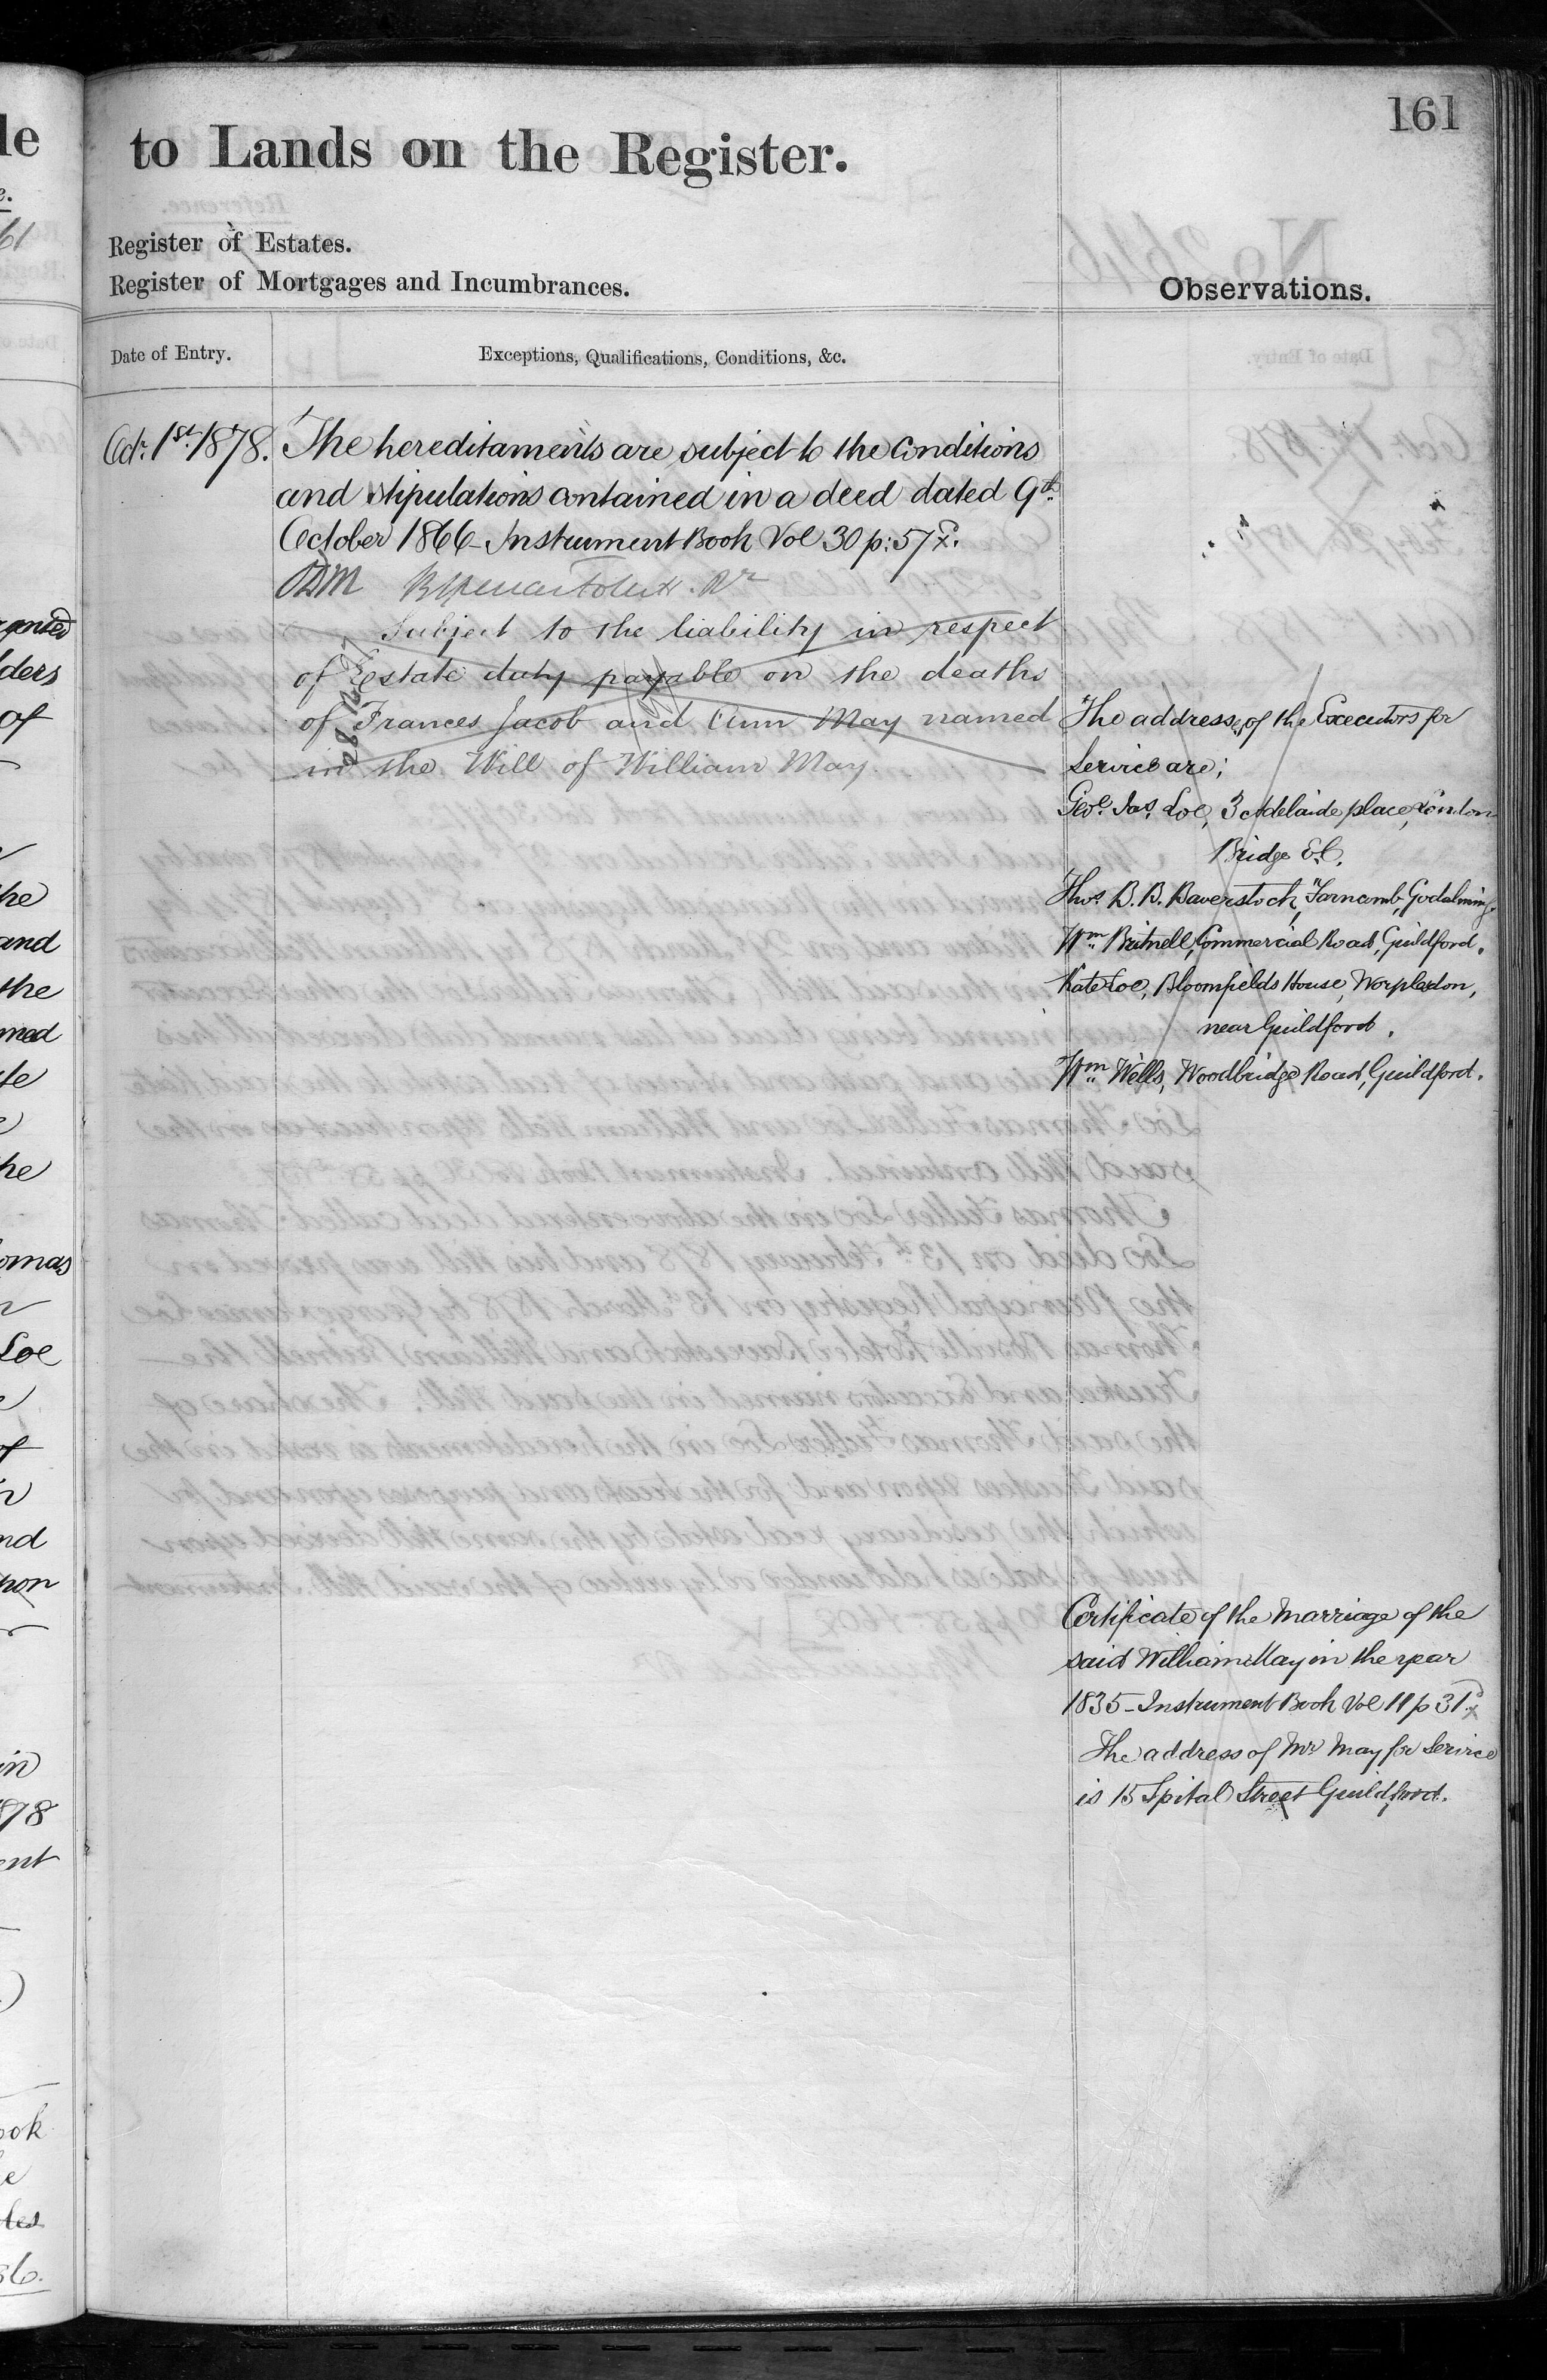 161
to Lands on the Register.
Register of Estates.
Register of Mortgages and Incumbrances.
Observations.
Date of Entry.
Exceptions, Qualifications, Conditions, &c.
Oct. 1st. 1878.
The hereditaments are subject to the Conditions
and stipulations contained in a deed dated 9th
October 1866 - Instrument Book Vol 30 p: 57
Subject to the liability in respect
of Estate duty payable on the deaths
of Frances Jacob and Ann May named
in the Will of William May.
The addresses of the Executors for
Service are;
Geo. Jas. Loe, 3 Adelaide place, London
Bridge E.C.
Thos. B. B. Baverstock, Farncomb, Godalming.
Wm. Britnell, Commercial Road, Guildford.
Kate Loe, Bloomfields House, Worplesdon,
near Guildford.
Wm. Wells, Woodbridge Road, Guildford.
Certificate of the Marriage of the
said William May in the year
1835 - Instrument Book Vol 11 p 31
The address of Mr May for Service
is 15 Spital Street Guildford.